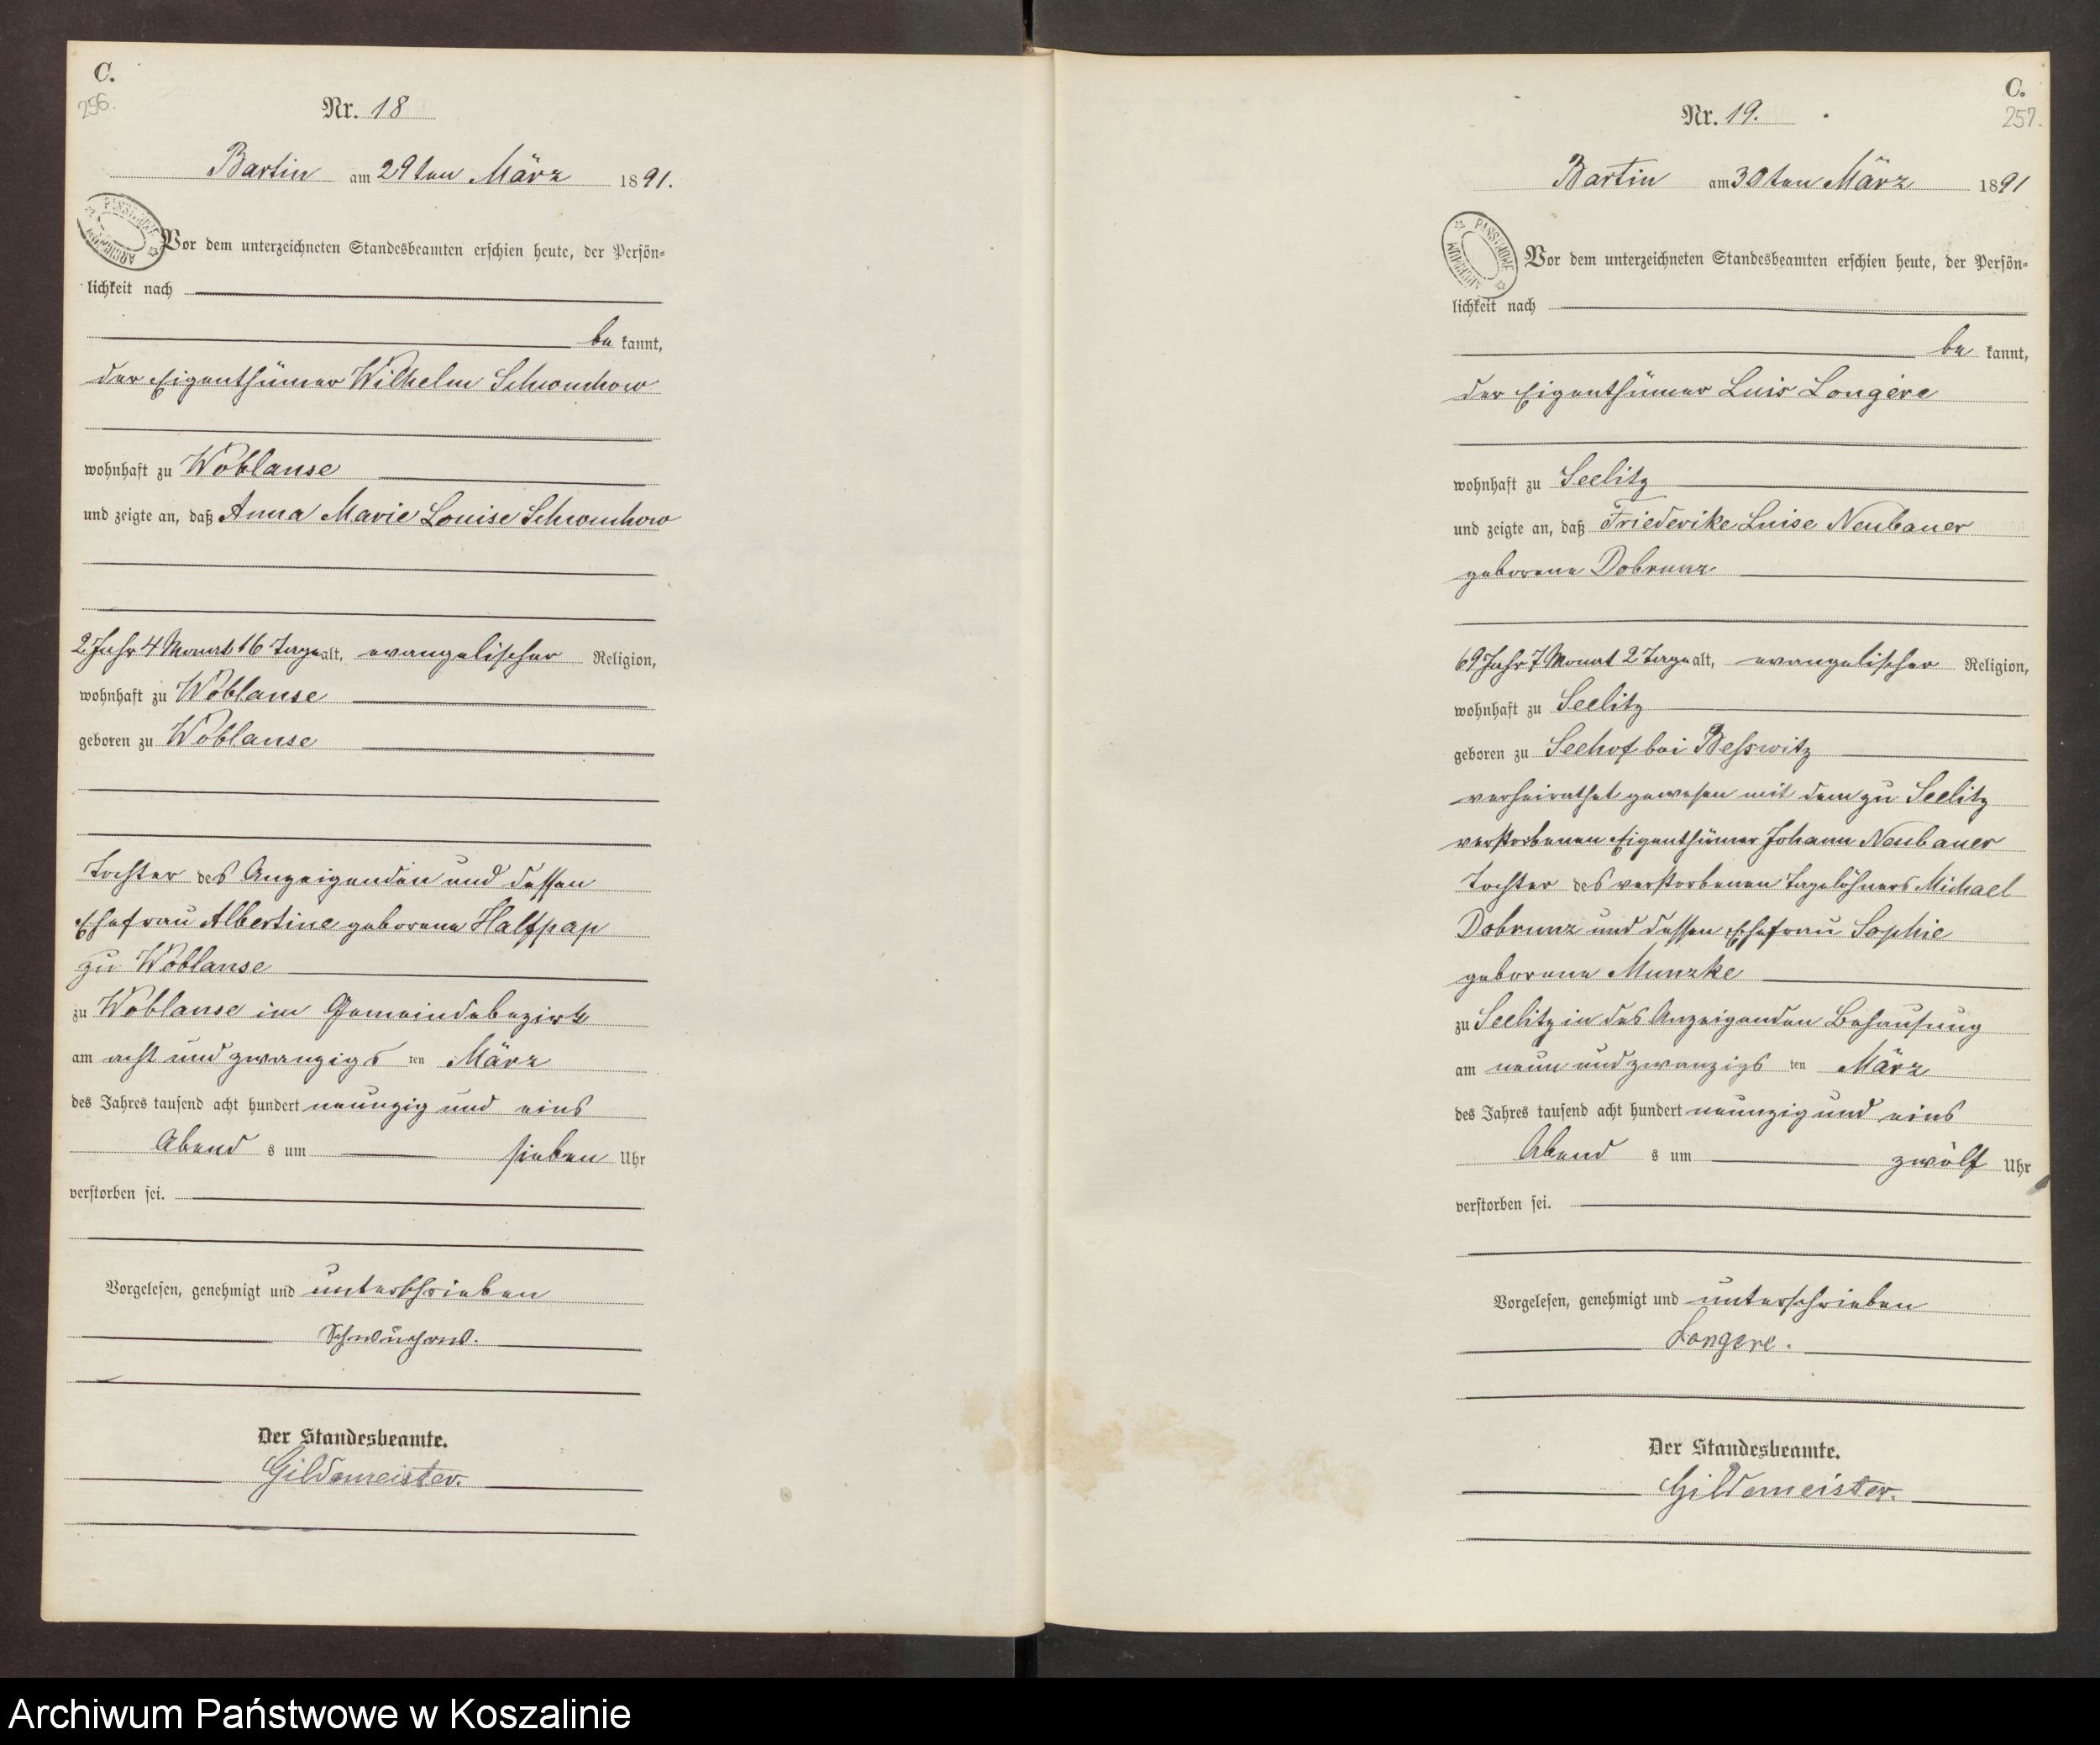 C.
256.
Nr. 18
Bartin am 29ten März 1891.
Vor dem unterzeichneten Standesbeamten erschien heute, der Persön-
lichkeit nach
be kannt,
der Eigenthümer Wilhelm Schwuchow
wohnhaft zu Woblanse
und zeigte an, daß Anna Marie Louise Schwuchow
2 Jahr 4 Monat 16 Tage alt, evangelischer Religion,
wohnhaft zu Woblanse
geboren zu Woblanse
Tochter des Anzeigenden und dessen
Ehefrau Albertine geborene Halfpap
zu Woblanse
zu Woblanse im Gemeindebezirk
am acht und zwanzigs ten März
des Jahres tausend acht hundert neunzig und eins
Abend s um sieben Uhr
verstorben sei.
Vorgelesen, genehmigt und unterschrieben
Schwuchow.
Der Standesbeamte.
Gildemeister.
C.
257.
Nr. 19.
Bartin am 30ten März 1891
PANSTWOWE ARCHIWUM
Vor dem unterzeichneten Standesbeamten erschien heute, der Persön-
lichkeit nach
be kannt,
der Eigenthümer Luis Longére
wohnhaft zu Seelitz
und zeigte an, daß Friederike Luise Neubauer
geborene Dobrunz
69 Jahr 7 Monat 2 Tage alt, evangelischer Religion,
wohnhaft zu Seelitz
geboren zu Seehof bei Besswitz
verheirathet gewesen mit dem zu Seelitz
verstorbenen Eigenthümer Johann Neubauer
Tochter des verstorbenen Tagelöhners Michael
Dobrunz und dessen Ehefrau Sophie
geborene Munzke
zu Seelitz in des Anzeigenden Behausung
am neun und zwanzigs ten März
des Jahres tausend acht hundert neunzig und eins
Abend s um zwölf Uhr
verstorben sei.
Vorgelesen, genehmigt und unterschrieben
Longere.
Der Standesbeamte.
Gildemeister.
Archiwum Państwowe w Koszalinie